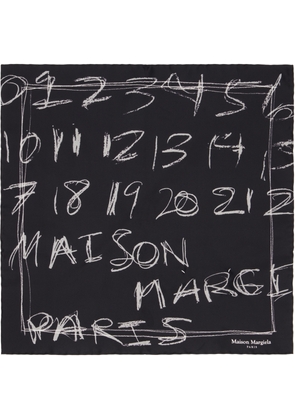 0 1 2 3 4 5 6
10 11 12 13 14
7 18 19 20 21 2
MAISON
MARGI
PARIS
Maison Margiela
PARIS